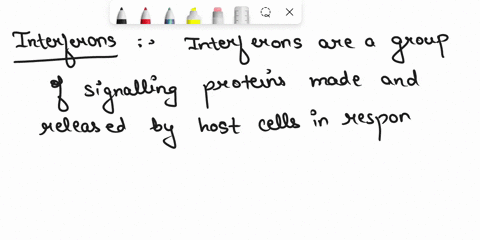 Interferons :- Interferons are a group
of signalling proteins made and
released by host cells in respon